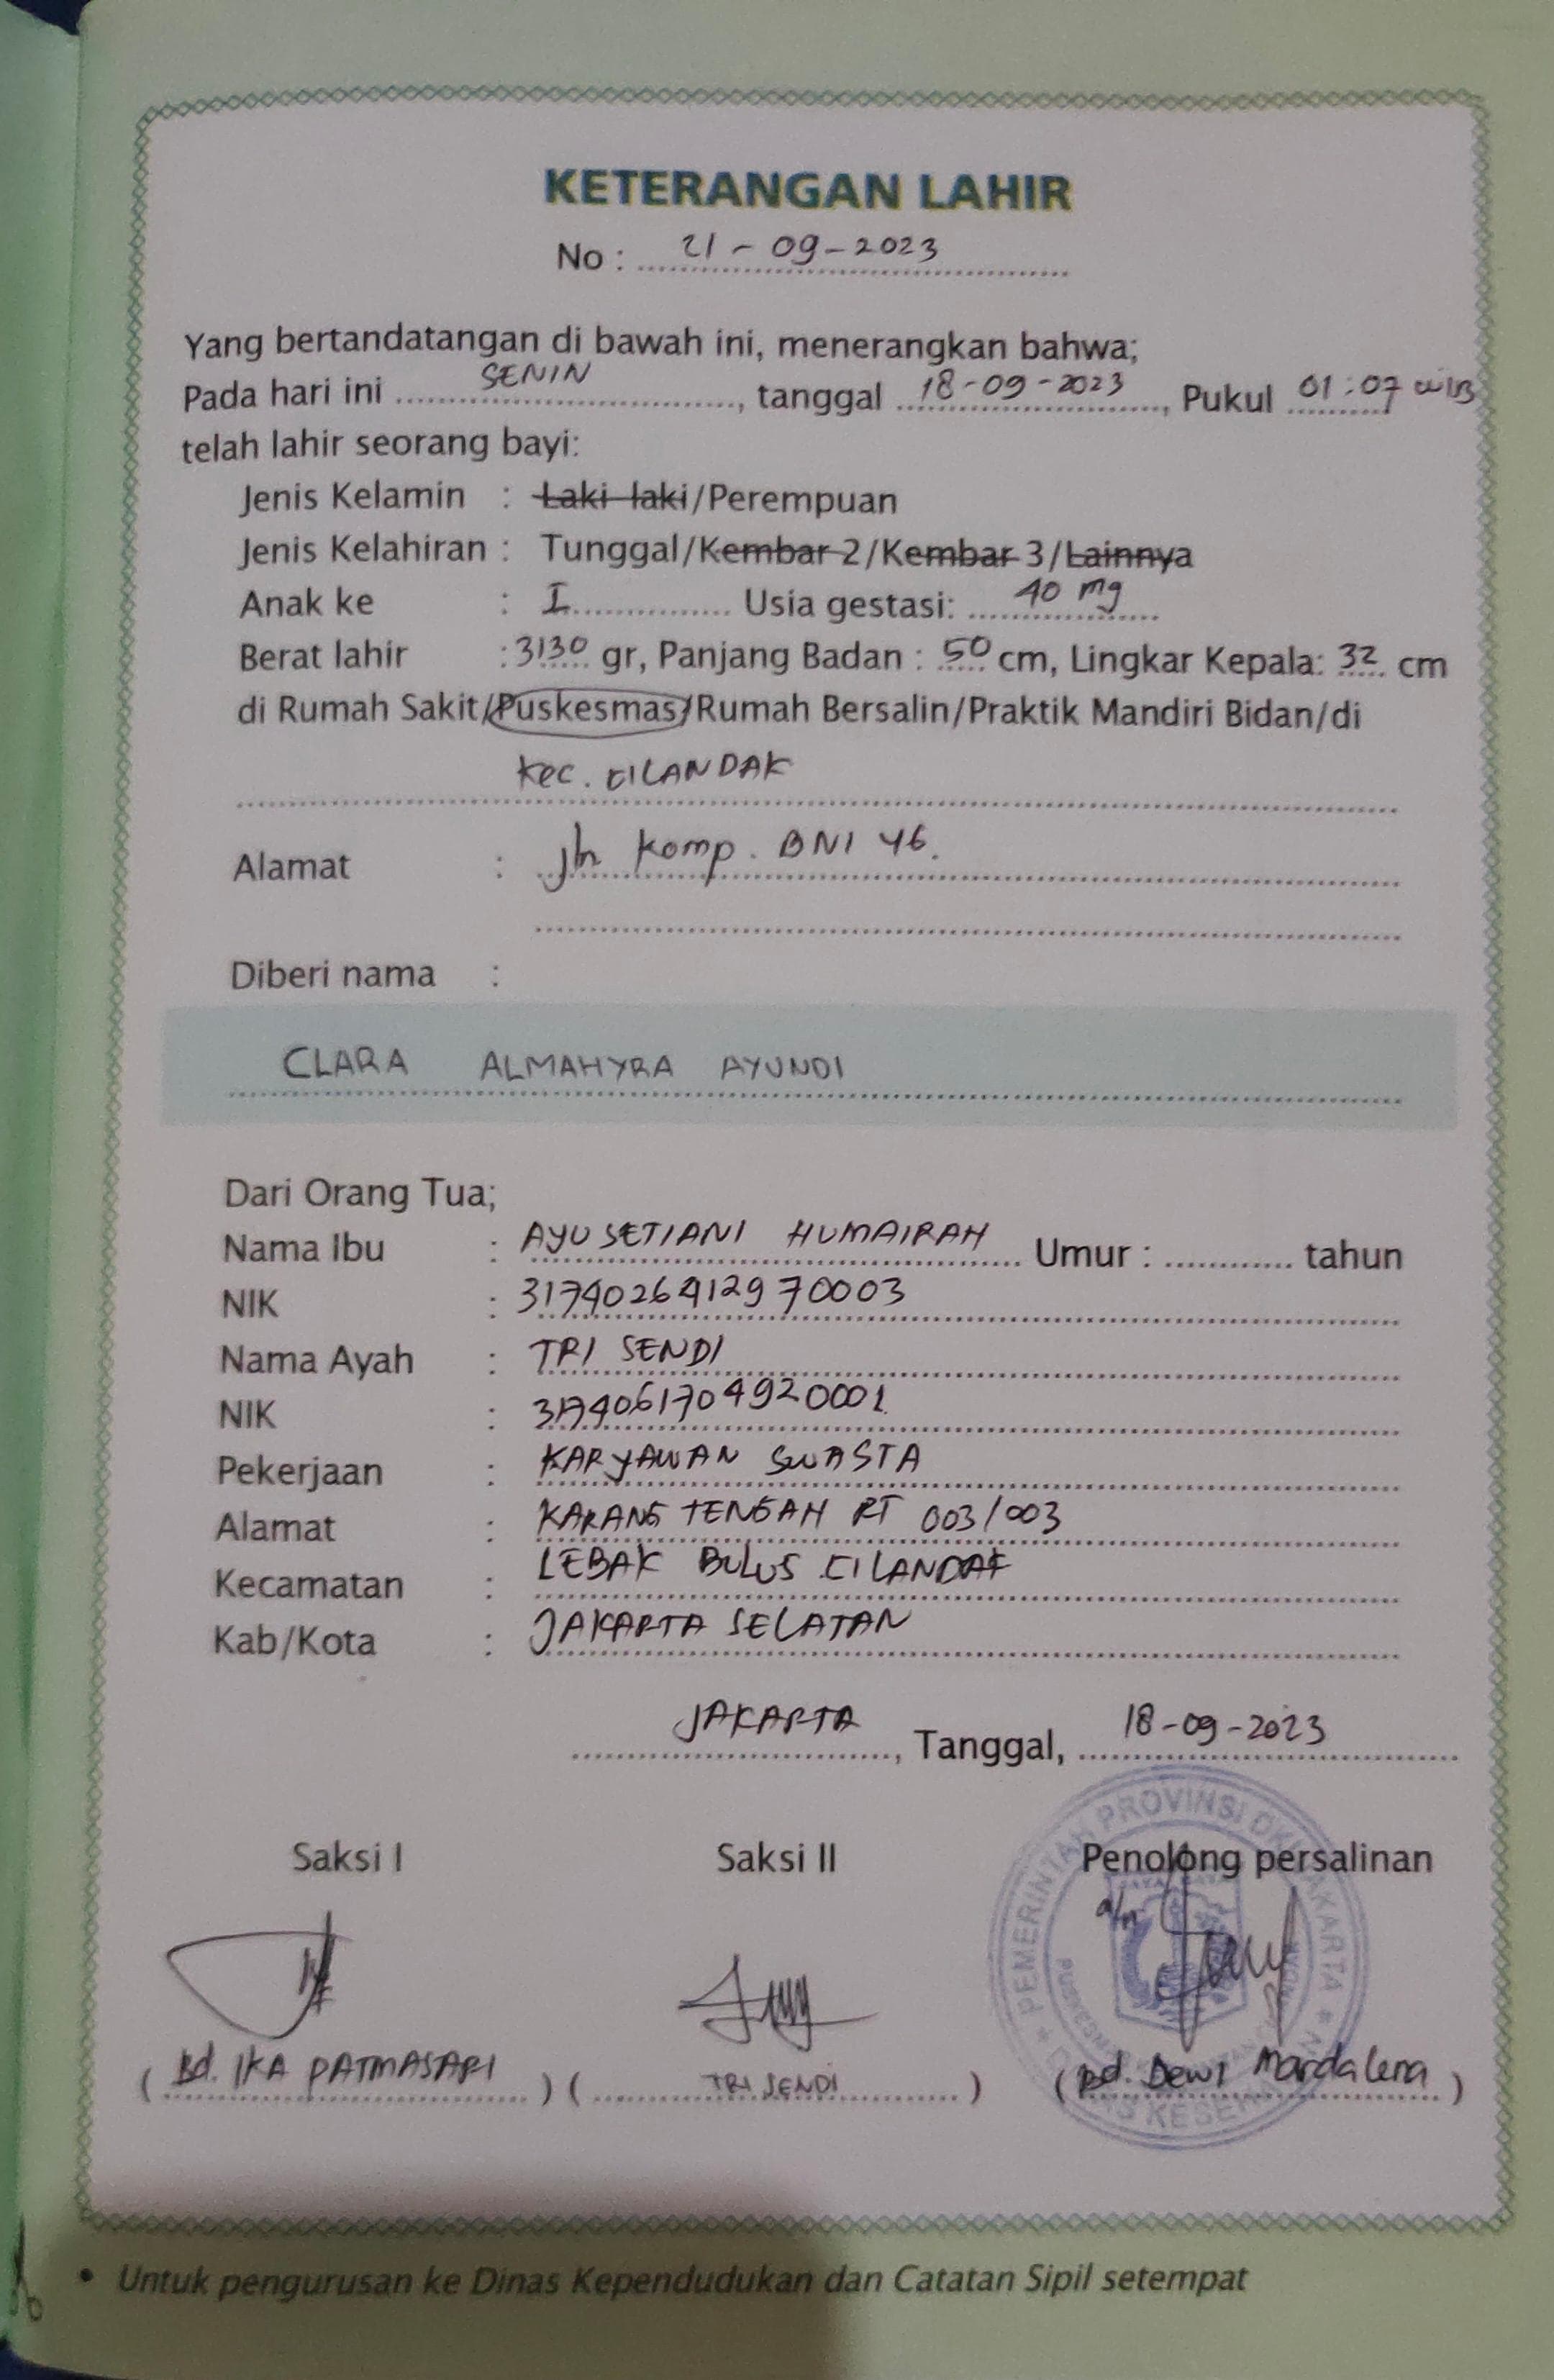 KETERANGAN LAHIR
No : 21 - 09 - 2023
Yang bertandatangan di bawah ini, menerangkan bahwa;
Pada hari ini SENIN, tanggal 18-09-2023, Pukul 01:07 WIB
telah lahir seorang bayi:
Jenis Kelamin : Laki-laki/Perempuan
Jenis Kelahiran : Tunggal/Kembar 2/Kembar 3/Lainnya
Anak ke : I Usia gestasi: 40 mg
Berat lahir : 3130 gr, Panjang Badan : 50 cm, Lingkar Kepala: 32 cm
di Rumah Sakit/Puskesmas/Rumah Bersalin/Praktik Mandiri Bidan/di
Kec. CILANDAK
Alamat : jln Komp. BNI 46.
Diberi nama :
CLARA ALMAHYRA AYUNDI
Dari Orang Tua;
Nama Ibu : AYU SETIANI HUMAIRAH Umur : tahun
NIK : 3174026412970003
Nama Ayah : TRI SENDI
NIK : 3174061704920001
Pekerjaan : KARYAWAN SWASTA
Alamat : KARANG TENGAH RT 003/003
Kecamatan : LEBAK BULUS CILANDAK
Kab/Kota : JAKARTA SELATAN
JAKARTA, Tanggal, 18-09-2023
Saksi I Saksi II Penolong persalinan
a/n
PEMERINTAH PROVINSI DKI JAKARTA
(Bd. IKA PATMASARI) (TRI SENDI) (Bd. Dewi Mardalena)
• Untuk pengurusan ke Dinas Kependudukan dan Catatan Sipil setempat